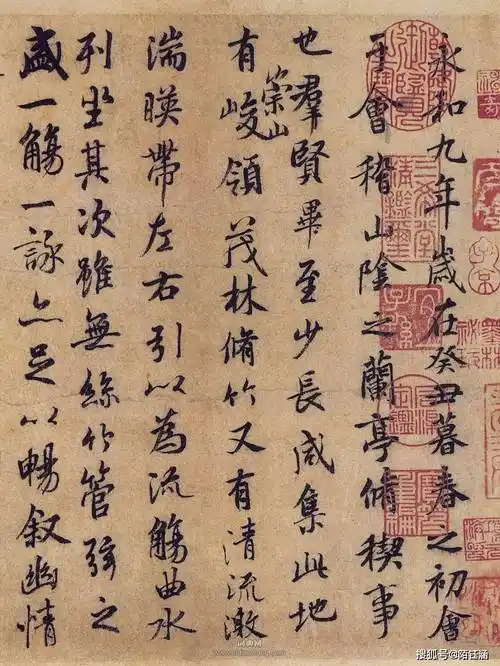 永和九年歲在癸丑暮春之初會
于會稽山陰之蘭亭脩稧事
也羣賢畢至少長咸集此地
有崇山峻領茂林脩竹又有清流激
湍暎帶左右引以為流觴曲水
列坐其次雖無絲竹管弦之
盛一觴一詠亦足以暢叙幽情
搜狐号@陌钰涵